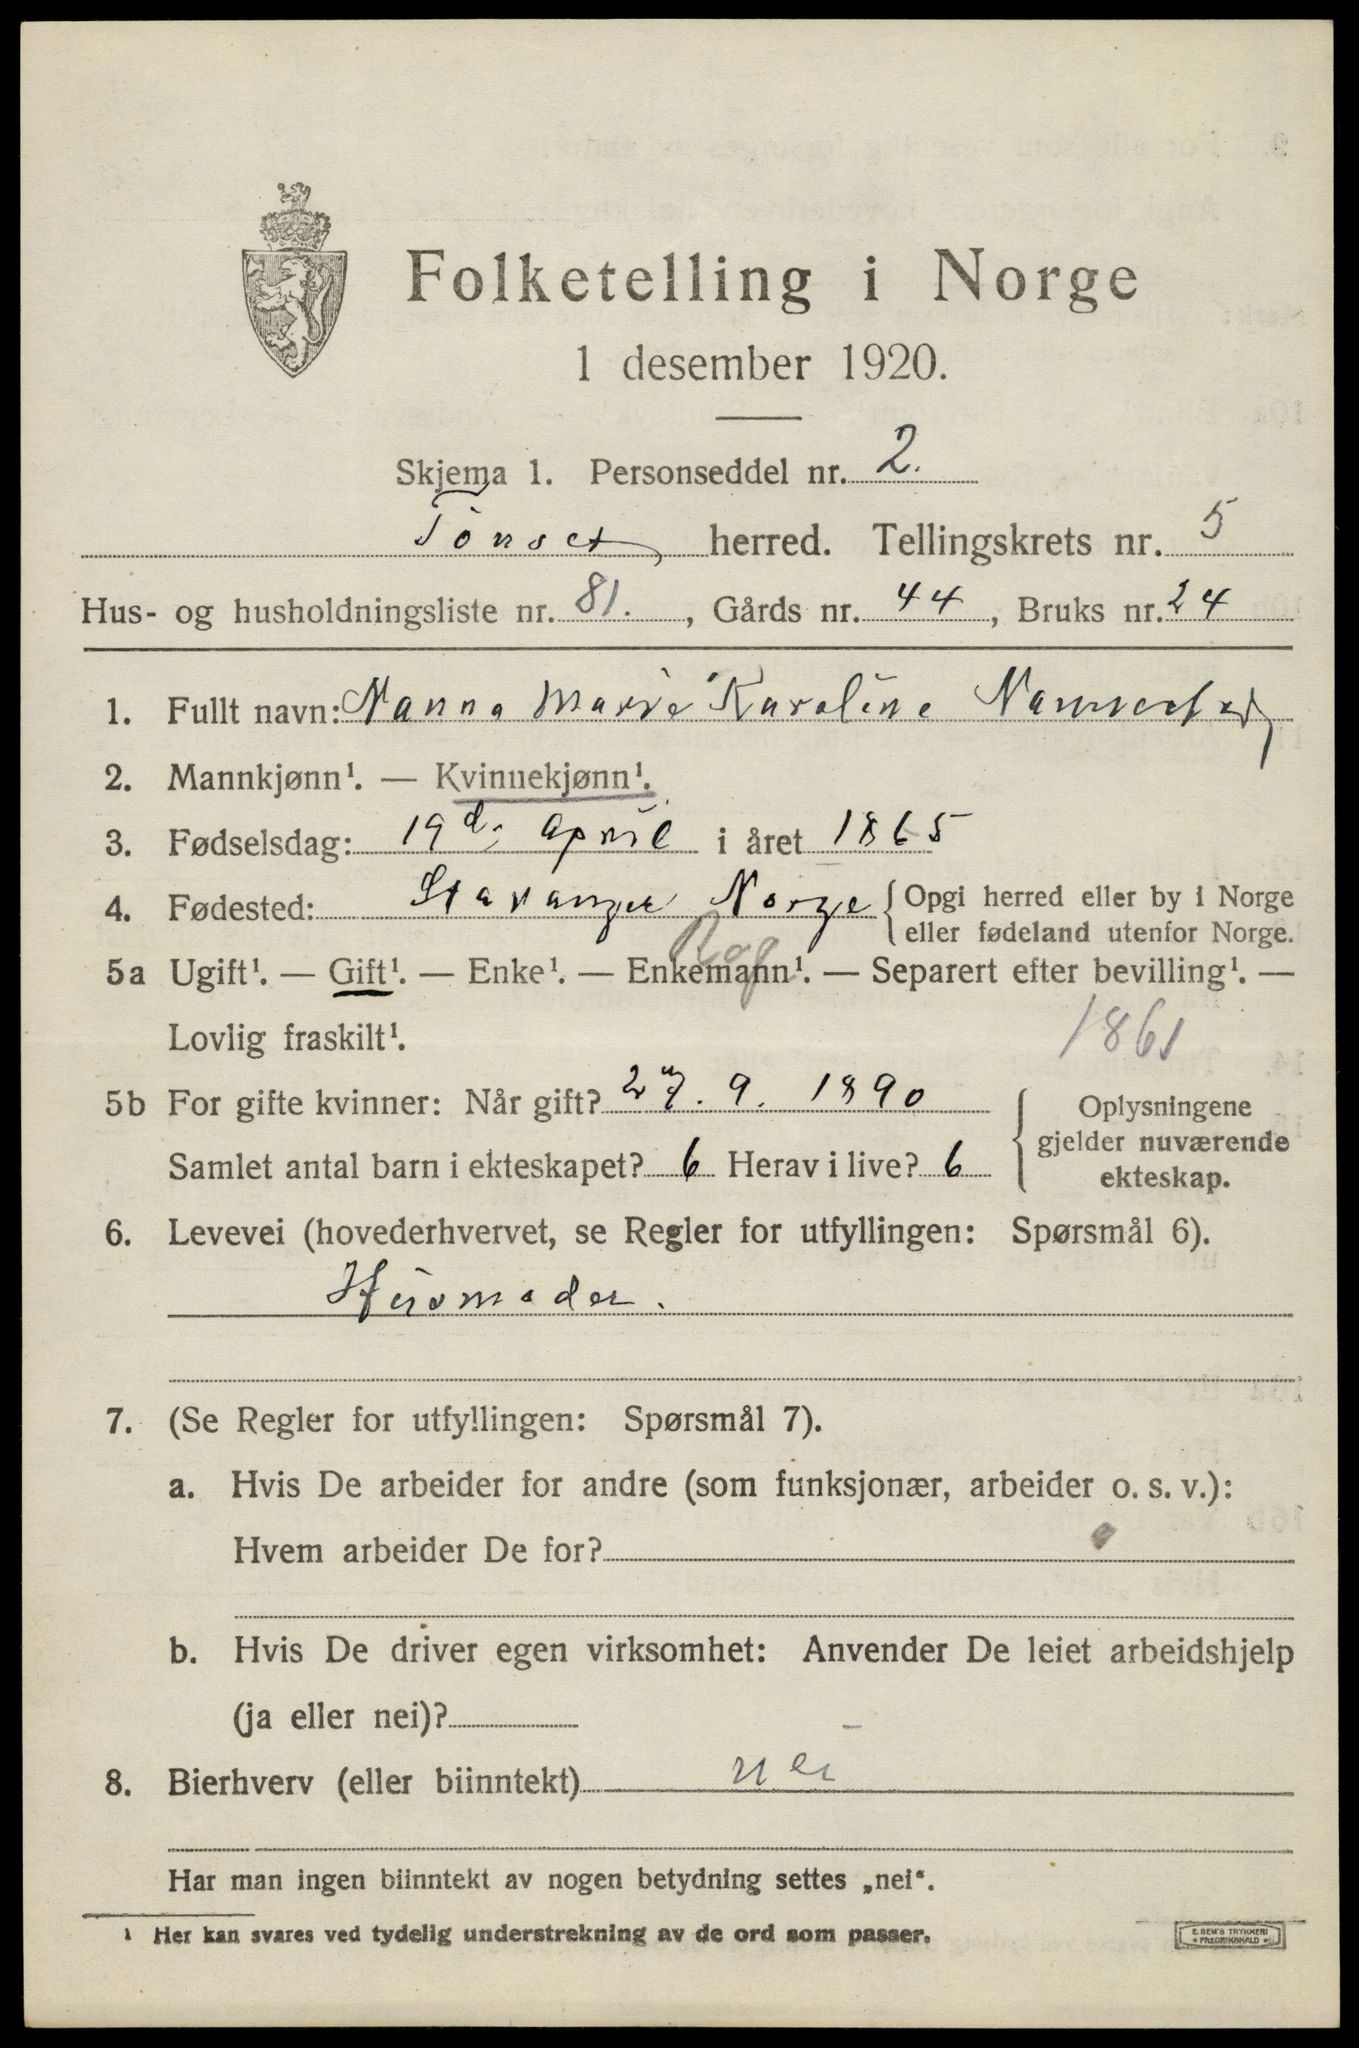 Folketelling i Norge
1 desember 1920.
Skjema 1. Personseddel nr. 2.
Tönset herred. Tellingskrets nr. 5
Hus- og husholdningsliste nr. 81. , Gårds nr. 44 , Bruks nr. 24
1. Fullt navn: Nanna Marie Karoline
2. Mannkjønn¹. — Kvinnekjønn¹.
3. Fødselsdag: 19de april i året 1865
4. Fødested: Stavanger Norge { Opgi herred eller by i Norge
eller fødeland utenfor Norge.
Rog
5a Ugift¹. — Gift¹. — Enke¹. — Enkemann¹. — Separert efter bevilling¹. —
Lovlig fraskilt¹.
1861
5b For gifte kvinner: Når gift? 27. 9. 1890
Samlet antal barn i ekteskapet? 6 Herav i live? 6
{ Oplysningene
gjelder nuværende
ekteskap.
6. Levevei (hovederhvervet, se Regler for utfyllingen: Spørsmål 6).
Husmoder.
7. (Se Regler for utfyllingen: Spørsmål 7).
a. Hvis De arbeider for andre (som funksjonær, arbeider o. s. v.):
Hvem arbeider De for?
b. Hvis De driver egen virksomhet: Anvender De leiet arbeidshjelp
(ja eller nei)?
8. Bierhverv (eller biinntekt) nei
Har man ingen biinntekt av nogen betydning settes „nei“.
¹ Her kan svares ved tydelig understrekning av de ord som passer.
E. SEM'S TRYKKERI
FREDRIKSHALD